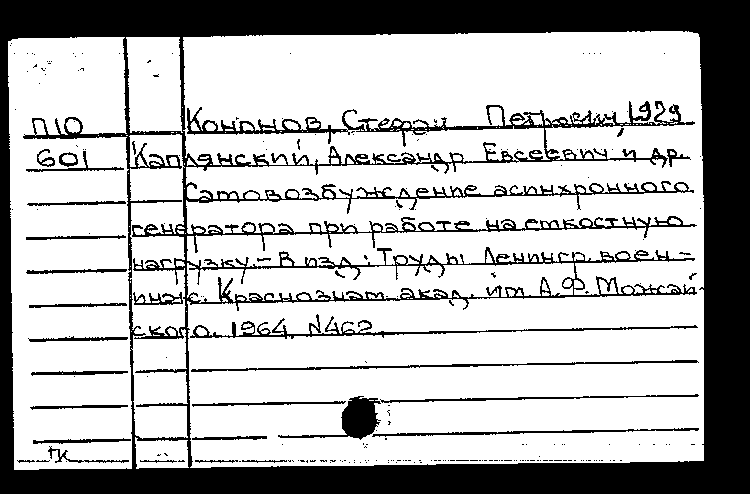 П10 Кононов, Стефан Петрович, 1929
601 Каплянский, Александр Евсеевич и др.
Самовозбуждение асинхронного
генератора при работе на емкостную
нагрузку. – В изд.: Труды Ленингр. воен-
инж. Краснознам. акад. им. А.Ф. Можай-
ского. 1964. N462.
тк